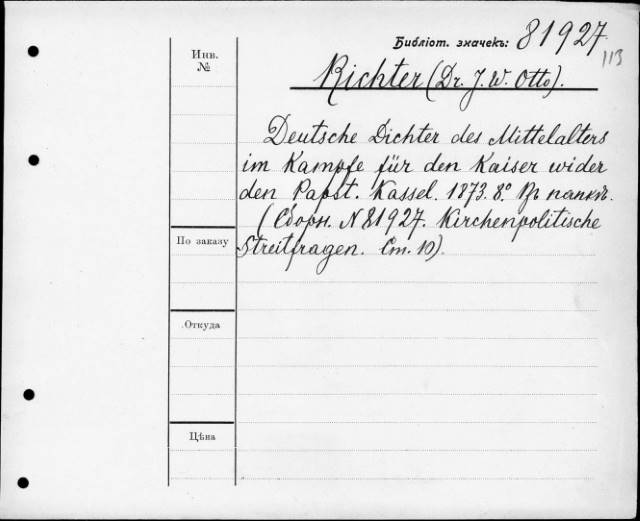 Библіот. значекъ: 81927
113
Инв.
№
Richter (Dr. J. W. Otto).
Deutsche Dichter des Mittelalters
im Kampfe für den Kaiser wider
den Papst. Kassel. 1873. 8° Въ папкѣ.
(Сборн. N 81927. Kirchenpolitische
Streitfragen. Ст. 10).
По заказу
Откуда
Цѣна